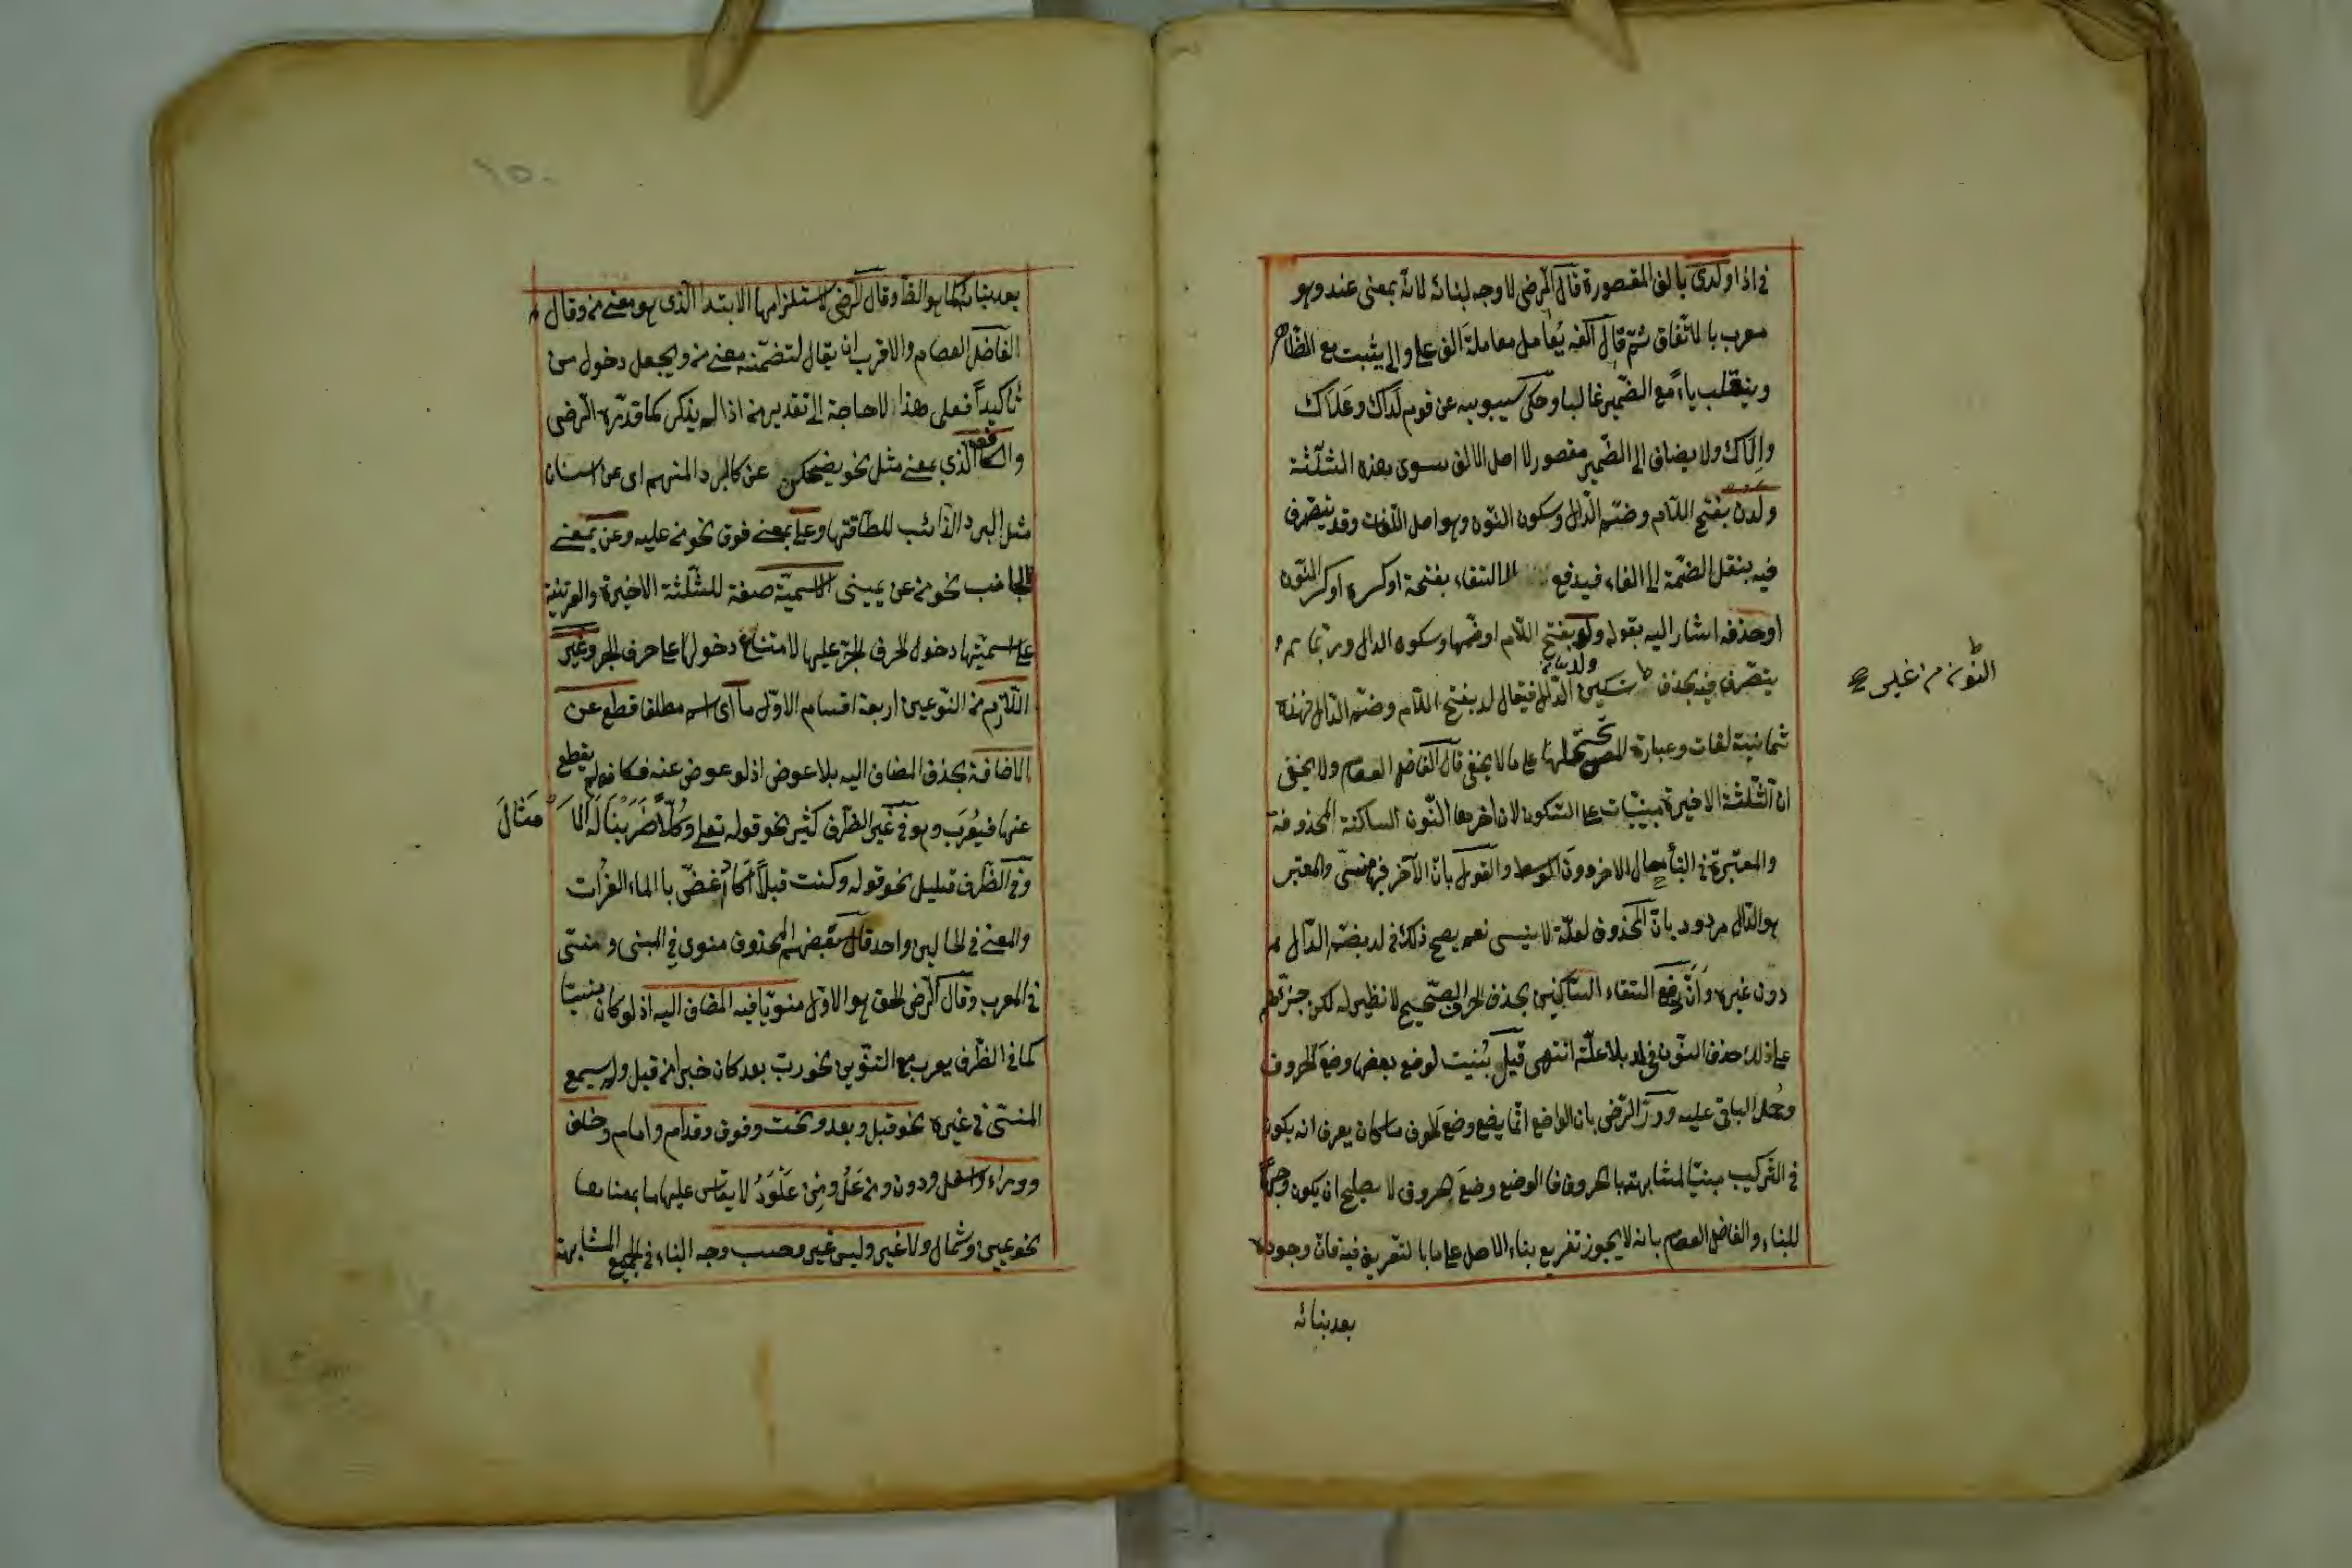 في اذا ولدى بالف المقصورة قال الرضى لا وجه لبنائه لانه بمعنى عند وهو
معرب بالاتفاق ثم قال الفه يعامل معاملة الف على والى يثبت مع الظاهر
وينقلب ياء مع الضمير غالبا وحكى سيبويه عن قوم لداك وعلاك
والاك ولا يضاف الى الضمير مقصور لا اصل لالفه سوى هذه الثلثة
ولدن بفتح اللام وضم الدال وسكون النون وهو اصل اللغات وقد يتصرف
فيه بنقل الضمة الى الفاء فيدفع التقاء بفتحة او كسرة او كسر النون
او حذفه اشار اليه بقوله ولد بفتح اللام او ضمها وسكون الدال وربما
يتصرف فيه بحذف تسكين الدال فيقال لد بفتح اللام وضم الدال فهذه
النون من غير
ثمانية لغات وعبارة المص تحتملها على ما لا يخفى قال الفاضل العصام ولا يخفى
ان الثلثة الاخيرة مبنيات على السكون لان اخرها النون الساكنة المحذوفة
والمعتبرة في البناء حال الاخر دون الوسط والقول بان الآخر فيها منسى والمعتبر
هو الدال مردود بان المحذوف لعلة لا ينسى نعم يصح ذلك في لد بضم الدال
دون غيره وان دفع التقاء الساكنين بحذف الحرف الصحيح لا نظير له لكن جرئهم
على ذلك حذف النون في لد بلا علة انتهى قيل بنيت لوضع بعضها وضع الحروف
وحمل الباقي عليه ورد الرضى بان الواضع انما يضع وضع الحروف ما كان يعرف انه يكون
في التركيب مبنيا لمشابهته بالحروف فالوضع وضع الحروف لا يصلح ان يكون وجها
للبناء والفاضل العصام بانه لا يجوز تفريع بناء الاصل على ما بالتصريف فيه فان وجوده
بعد بنائه
بعد بنائه كما هو الظ وقال الرضى لاستلزامها الابتداء الذى هو معنى من وقال
الفاضل العصام والاقرب ان يقال لتضمنه معنى من ويجعل دخول من
تأكيدا فعلى هذا لا حاجة الى تقدير من اذا لم يذكر كما قدره الرضى
والكاف الذي بمعنى مثل نحو يضحكن عن كالبرد المنهم اى عن اسنان
مثل البرد الذائب للطافتها وعلى بمعنى فوق نحو من عليه وعن بمعنى
الجانب نحو من عن يمينى الاسمية صفة للثلثة الاخيرة والقرينة
على اسميتها دخول الحرف الجر عليها لامتناع دخولها على حرف الجر وغير
اللازم من النوعين اربعة اقسام الاول ما اى اسم مطلقا قطع عن
الاضافة بحذف المضاف اليه بلا عوض اذ لو عوض عنه فكانه لم يقطع
عنها فيعرب وهو في غير الظرف كثير نحو قوله تعلى وكلا ضربنا له الا مثال
وفي الظرف قليل نحو قوله وكنت قبلا اكاد اغص بالماء الفرات
والمعنى في الحالين واحد قال بعضهم المحذوف منوى في المبنى ومنسى
في المعرب وقال الرضى الحق هو الاول منويا فيه المضاف اليه اذ لو كان منسيا
كما في الظرف يعرب مع التنوين نحو رب بعد كان خيرا من قبل ولم يسمع
المنسى في غيره نحو قبل وبعد وتحت وفوق وقدام وامام وخلف
ووراء واسفل ودون ومن عل ومن علو لا يقاس عليها ما بمعناها
نحو يمين وشمال ولا غير وليس غير وحسب وجه البناء في الجميع المشابهة